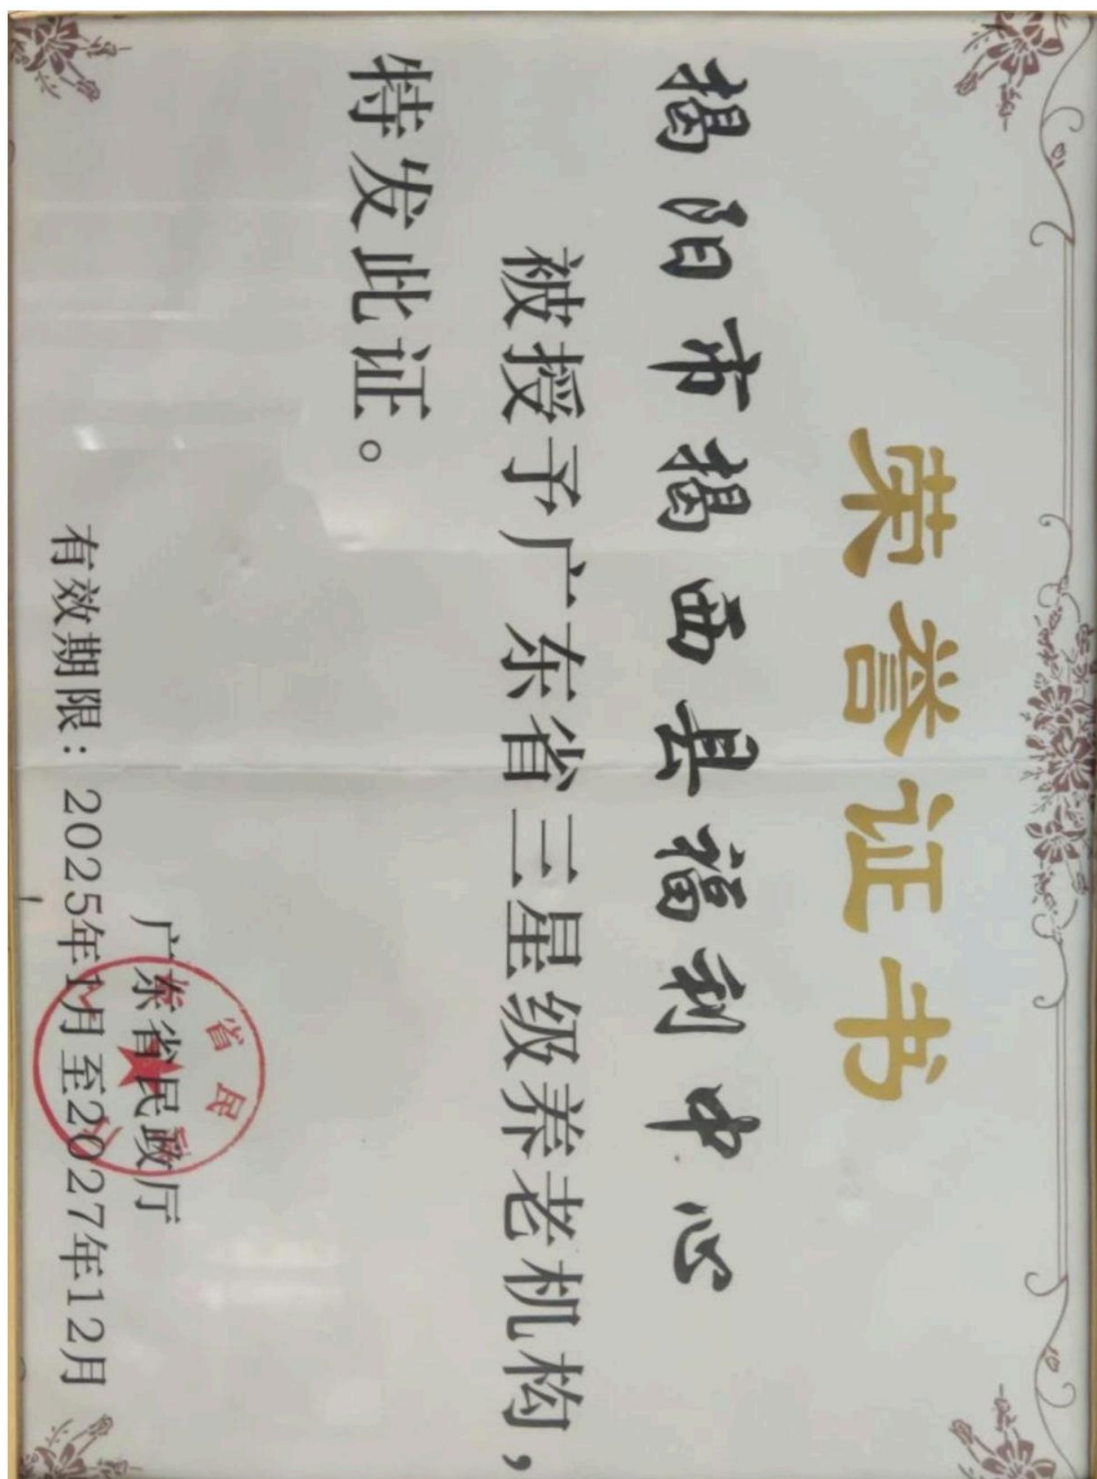 荣誉证书
揭阳市揭西县福利中心
被授予广东省三星级养老机构，
特发此证。
广东省民政厅
有效期限：2025年1月至2027年12月
省民